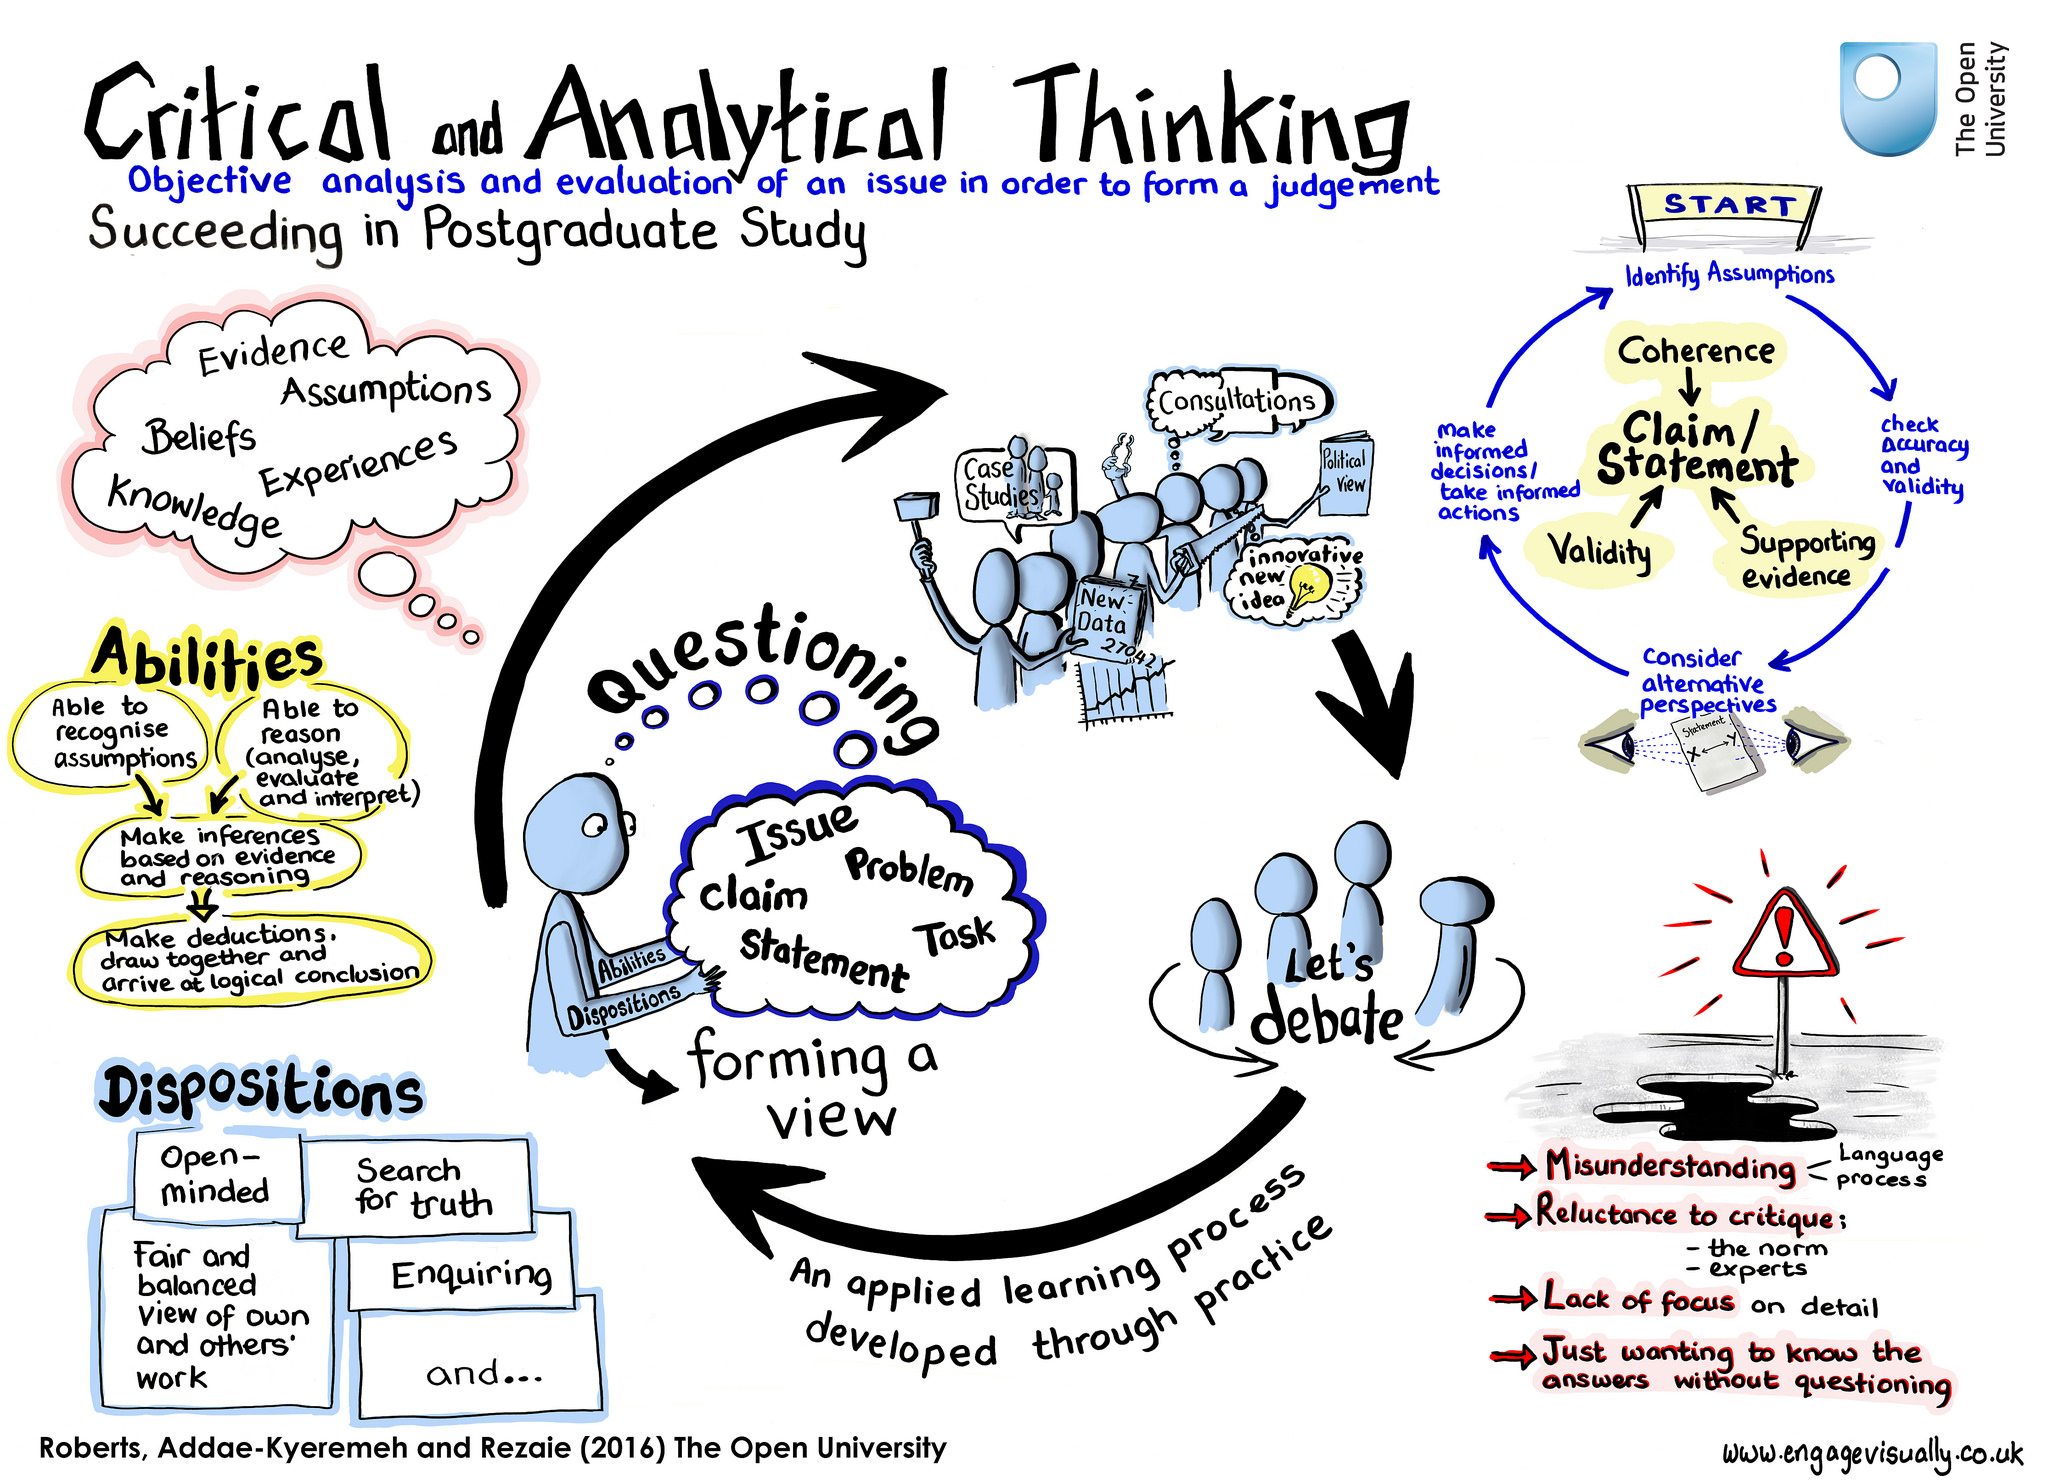 Critical and Analytical Thinking
Objective analysis and evaluation of an issue in order to form a judgement
Succeeding in Postgraduate Study
The Open
University
Evidence
Assumptions
Beliefs
Experiences
Knowledge
Abilities
Able to
recognise
assumptions
Able to
reason
(analyse,
evaluate
and interpret)
Make inferences
based on evidence
and reasoning
Make deductions,
draw together and
arrive at logical conclusion
Dispositions
Open-
minded
Search
for truth
Fair and
balanced
view of own
and others'
work
Enquiring
and...
Questioning
Issue
Problem
Claim
Task
Statement
Abilities
Dispositions
forming a
view
Consultations
Case
Studies
Political
View
innovative
new
idea
New
Data
7
27042
Let's
debate
An applied learning process
developed through practice
START
Identify Assumptions
check
Accuracy
and
validity
Consider
alternative
perspectives
Statement
X Y
make
informed
decisions/
take informed
actions
Coherence
Claim/
Statement
Validity
Supporting
evidence
!
Misunderstanding
Language
process
Reluctance to critique:
- the norm
- experts
Lack of focus on detail
Just wanting to know the
answers without questioning
Roberts, Addae-Kyeremeh and Rezaie (2016) The Open University
www.engagevisually.co.uk